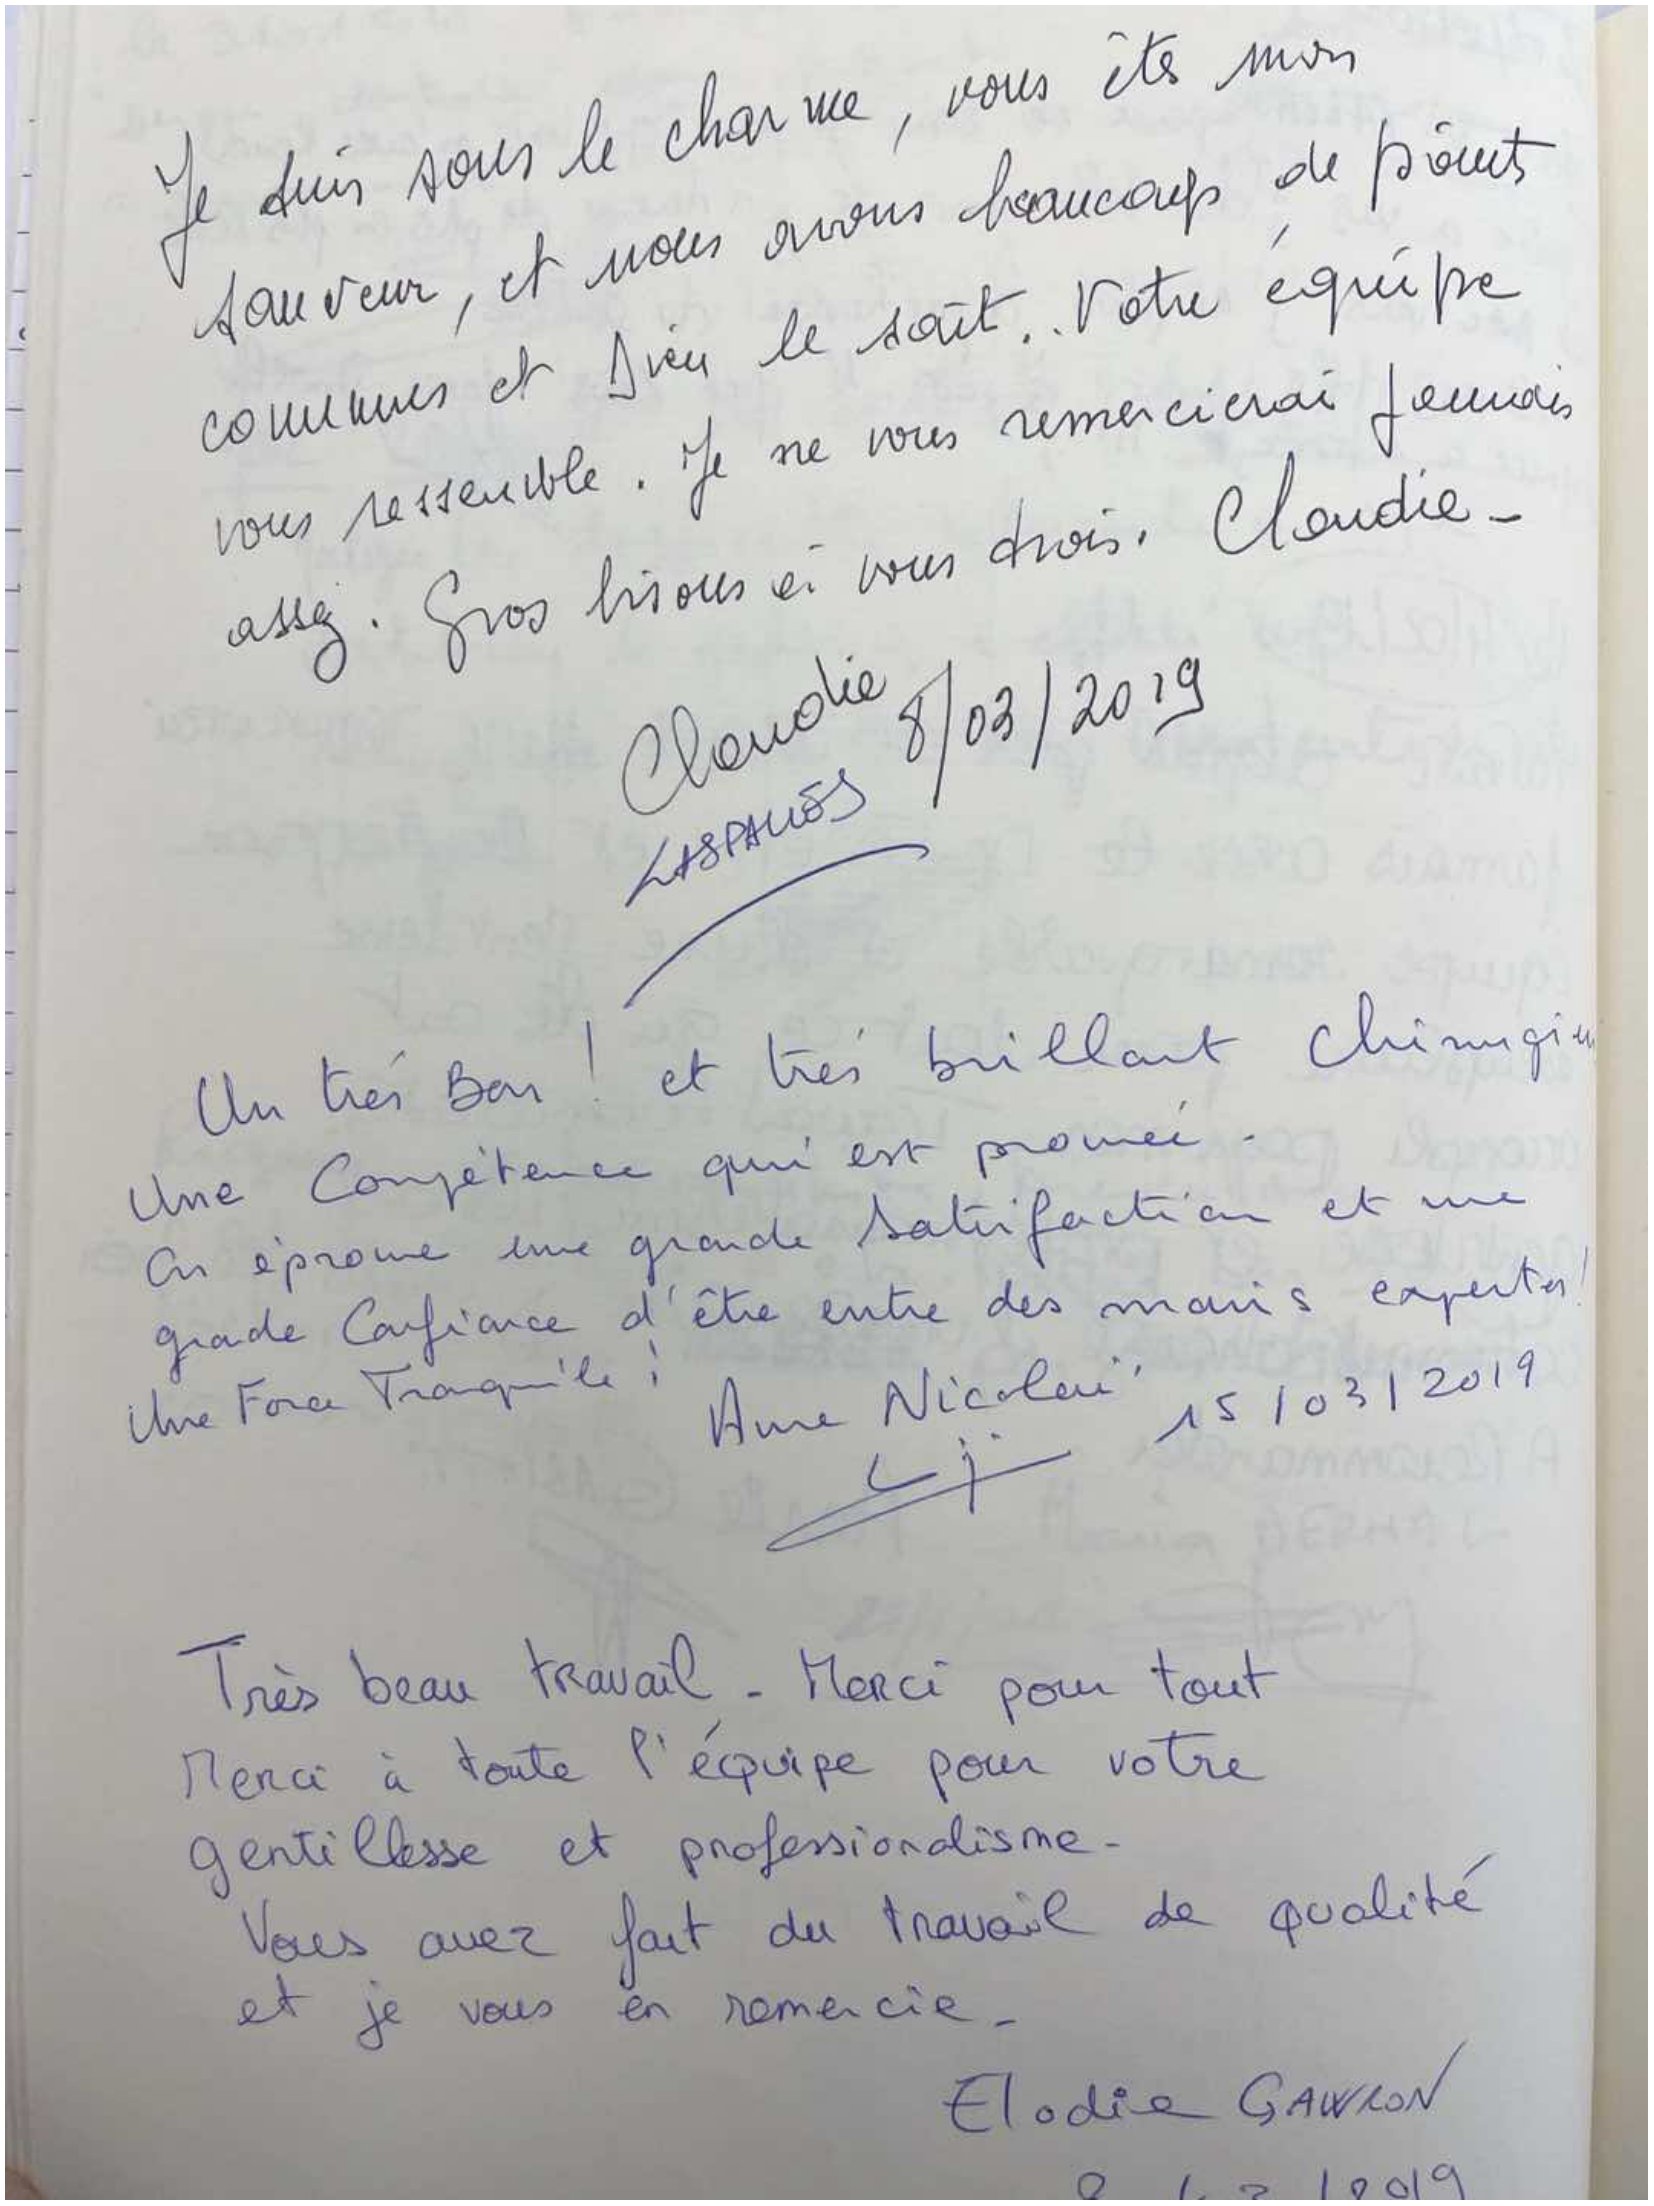 Je suis sous le charme, vous êtes mon
sauveur, et nous avons beaucoup de points
communs et Dieu le sait.. Votre équipe
vous ressemble. Je ne vous remercierai jamais
assez. Gros bisous à vous trois. Claudie -
Claudie 8/03/2019
Un trés Bon ! et trés brillant Chirurgien
Une Compétence qui est prouvée.
On éprouve une grande Satisfaction et une
grande Confiance d'être entre des mains expertes!
Une Force Tranquile !
Anne Nicolaï 15/03/2019
Très beau travail - Merci pour tout
Merci à toute l'équipe pour votre
gentillesse et professionalisme -
Vous avez fait du travail de qualité
et je vous en remercie -
Elodie GAWRON